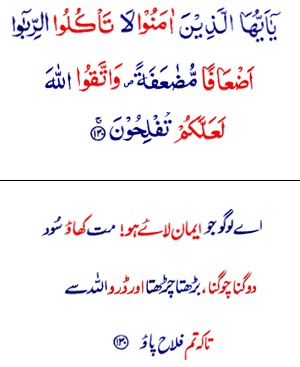 يٰۤاَيُّهَا الَّذِيۡنَ اٰمَنُوۡا لَا تَاۡكُلُوا الرِّبٰٓوا
اَضۡعَافًا مُّضٰعَفَةً ۖ وَاتَّقُوا اللّٰهَ
لَعَلَّكُمۡ تُفۡلِحُوۡنَ‌ۚ‏ ﴿۱۳۰﴾
اے لوگو جو ایمان لائے ہو! مت کھاؤ سُود
دوگنا چوگنا، بڑھتا چڑھتا اور ڈرو اللہ سے
تاکہ تم فلاح پاؤ ﴿۱۳۰﴾